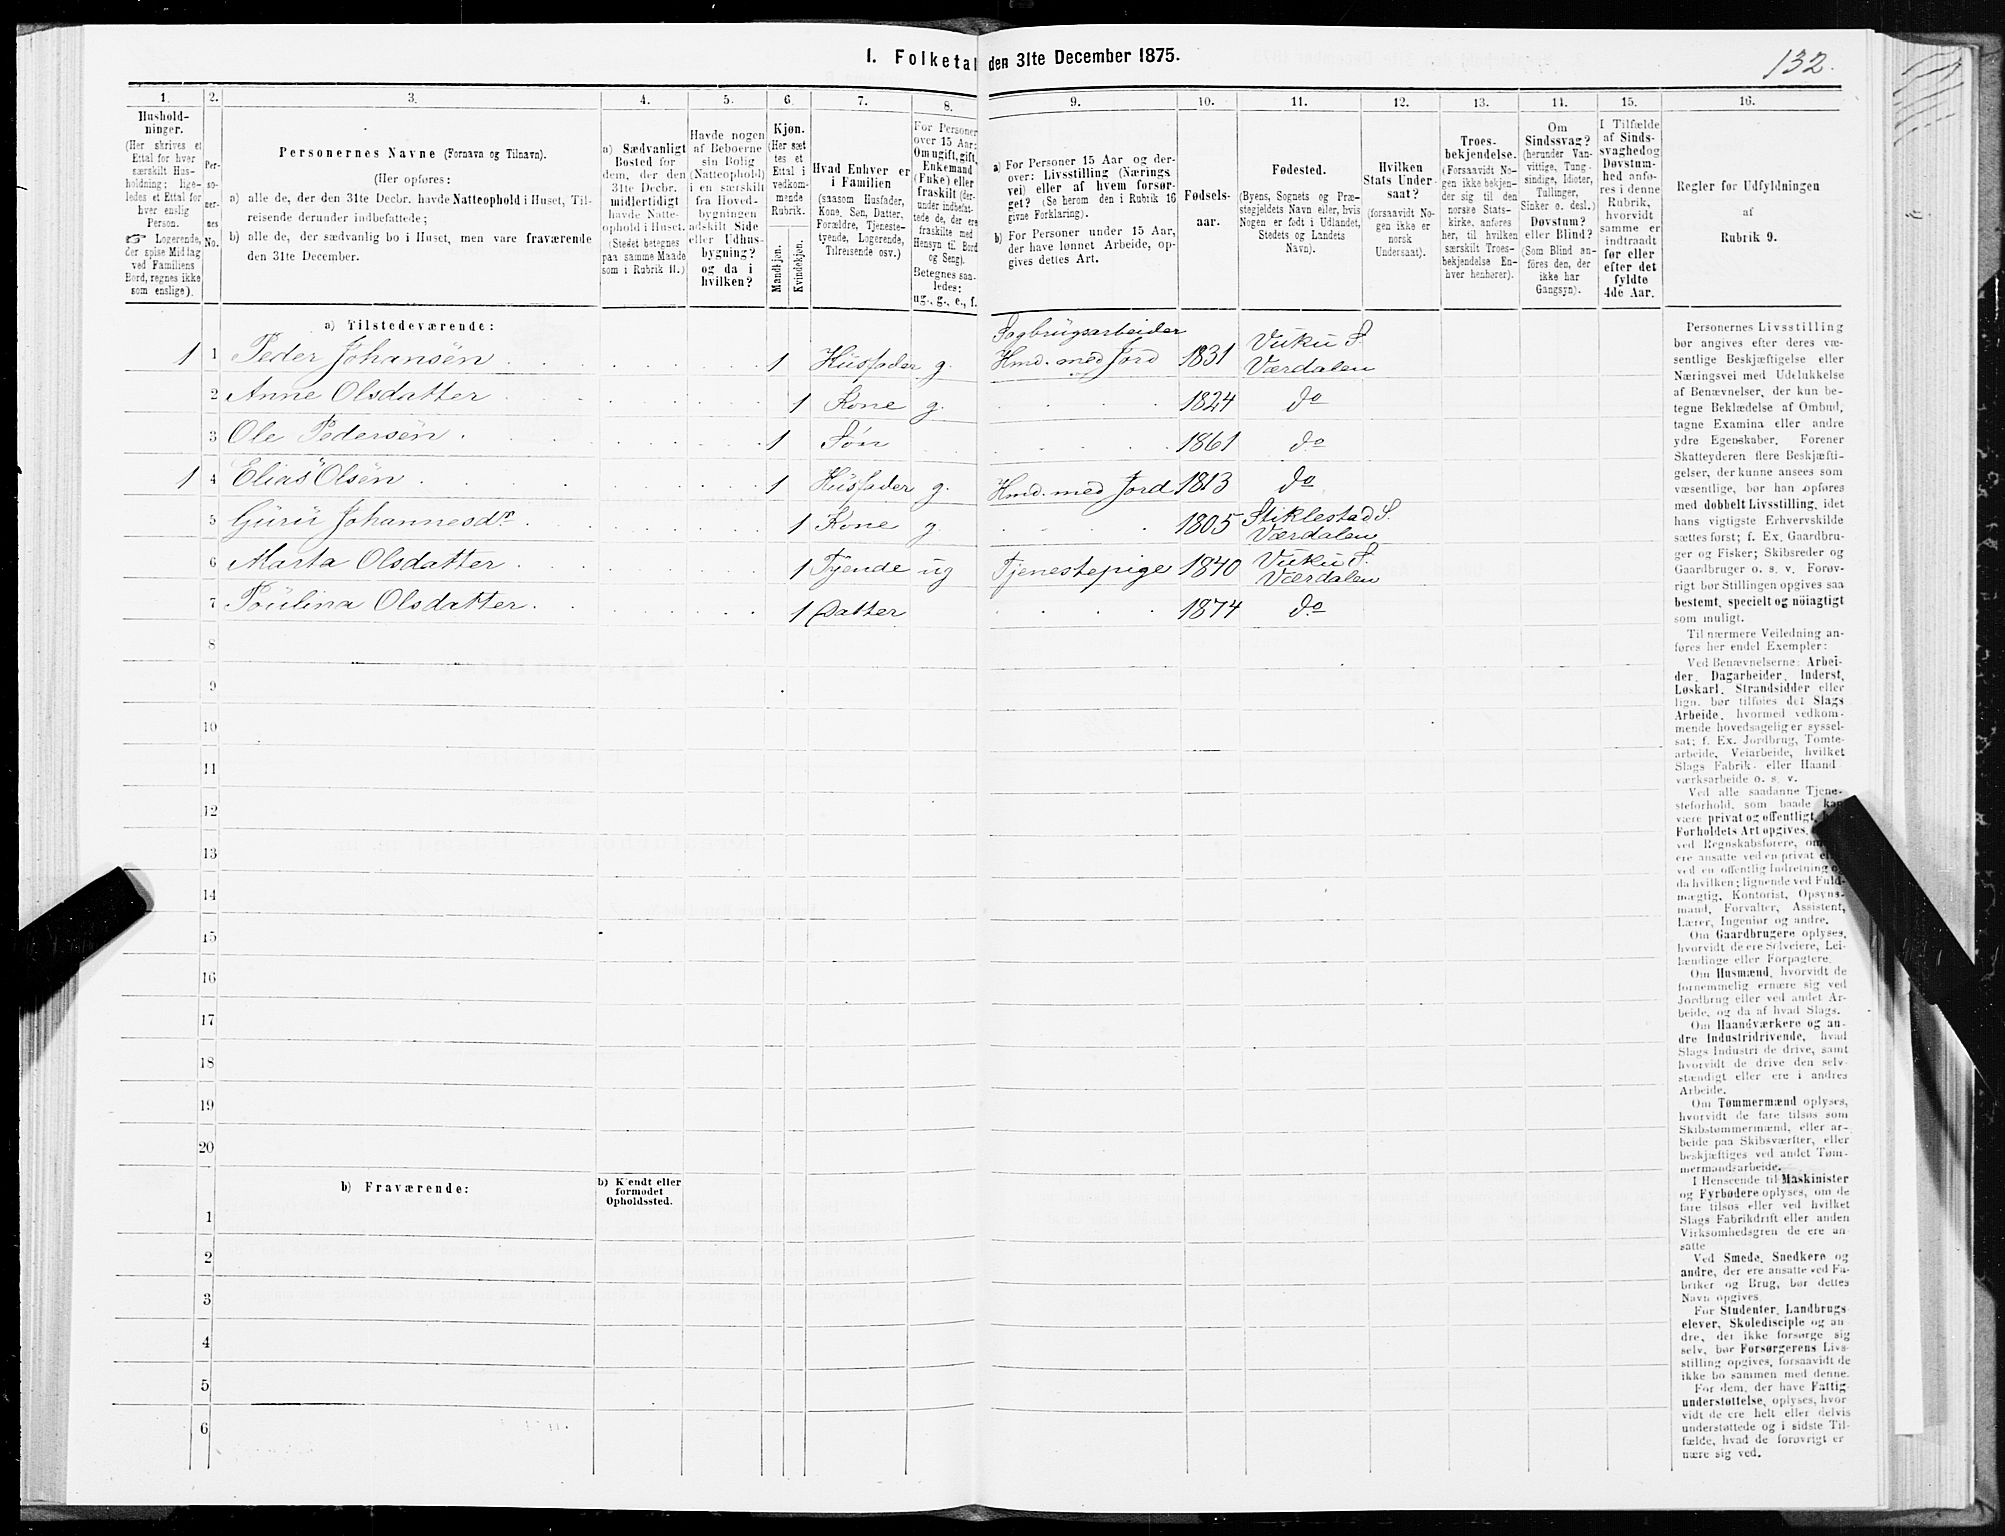 I. Folketal den 31te December 1875.
132.
1.
2.
3.
4.
5.
6.
7.
8.
9.
10.
11.
12.
13.
14.
15.
16.
Hushold-
ninger.
(Her skrives et
Ettal for hver
særskilt Hus-
holdning; lige-
ledes et Ettal for
hver enslig
Person.
☞ Logerende,
der spise Middag
ved Familiens
Bord, regnes ikke
som enslige).
Per-
so-
ner-
nes
No.
Personernes Navne (Fornavn og Tilnavn).
(Her opføres:
a) alle de, der den 31te Decbr. havde Natteophold i Huset, Til-
reisende derunder indbefattede;
b) alle de, der sædvanlig bo i Huset, men vare fraværende
den 31te December.
a) Sædvanligt
Bosted for
dem, der den
31te Decbr.
midlertidigt
havde Natte-
ophold i Huset.
(Stedet betegnes
paa samme Maade
som i Rubrik 11.)
Havde nogen
af Beboerne
sin Bolig
(Natteophold)
i en særskilt
fra Hoved-
bygningen
adskilt Side
eller Udhus-
bygning?
og da i
hvilken?
Kjøn.
(Her sæt
tes et
Ettal i
vedkom-
mende
Rubrik.
Mandkjøn.
Kvindekjøn.
Hvad Enhver er
i Familien
(saasom Husfader,
Kone, Søn, Datter,
Forældre, Tjeneste-
tyende, Logerende,
Tilreisende osv.)
For Personer
over 15 Aar:
Om ugift, gift,
Enkemand
(Enke) eller
fraskilt (der-
under indbefat-
tede de, der ere
fraskilte med
Hensyn til Bord
og Seng).
Betegnes saa-
ledes:
ug., g., e., f.
a) For Personer 15 Aar og der-
over: Livsstilling (Nærings
vei) eller af hvem forsør-
get? (Se herom den i Rubrik 16
givne Forklaring).
b) For Personer under 15 Aar,
der have lønnet Arbeide, op-
gives dettes Art.
Fødsels-
aar.
Fødested.
(Byens, Sognets og Præ-
stegjeldets Navn eller, hvis
Nogen er født i Udlandet,
Stedets og Landets
Navn).
Hvilken
Stats Under-
saat?
(forsaavidt No-
gen ikke er
norsk
Undersaat).
Troes-
bekjendelse.
(Forsaavidt No-
gen ikke bekjen-
der sig til den
norske Stats-
kirke, anføres
her, til hvilken
særskilt Troes-
bekjendelse En-
hver henhører).
Om
Sindssvag?
(herunder Van-
vittige, Tung-
sindige, Idioter,
Tullinger,
Sinker o. desl.)
Døvstum?
eller Blind?
(Som Blind an-
føres den, der
ikke har
Gangsyn).
I Tilfælde
af Sinds-
svaghed og
Døvstum-
hed anfø-
res i denne
Rubrik,
hvorvidt
samme er
indtraadt
før eller
efter det
fyldte
4de Aar.
Regler for Udfyldningen
af
Rubrik 9.
a) Tilstedeværende:
Sagbrugsarbeider Vuku S.
1 1 Peder Johansen 1 Husfader g. Hmd. med Jord 1831 Værdalen
2 Anne Olsdatter 1 Kone g. 1824 do
3 Ole Pedersen 1 Søn 1861 do
1 4 Elias Olsen 1 Husfader g. Hmd. med Jord 1813 do
5 Guru Johannesdr 1 Kone g. 1805 Stiklestad S. Værdalen
6 Marta Olsdatter 1 Tyende ug Tjenestepige 1840 Vuku S. Værdalen
7 Poulina Olsdatter 1 Datter 1874 do
8
9
10
11
12
13
14
15
16
17
18
19
20
b) Fraværende:
b) Kjendt eller
formodet
Opholdssted.
1
2
3
4
5
6
Personernes Livsstilling
bør angives efter deres væ-
sentlige Beskjæftigelse eller
Næringsvei med Udelukkelse
af Benævnelser, der kun be-
tegne Beklædelse af Ombud,
tagne Examina eller andre
ydre Egenskaber. Forener
Skatteyderen flere Beskjæfti-
gelser, der kunne ansees som
væsentlige, bør han opføres
med dobbelt Livsstilling, idet
hans vigtigste Erhvervskilde
sættes først; f. Ex. Gaardbru-
ger og Fisker; Skibsreder og
Gaardbruger o. s. v. Forøv-
rigt bør Stillingen opgives saa
bestemt, specielt og nöiagtigt
som muligt.
Til nærmere Veiledning an-
føres her endel Exempler:
Ved Benævnelserne: Arbei-
der, Dagarbeider, Inderst,
Løskarl, Strandsidder eller
lign. bør tilføies det Slags
Arbeide, hvormed vedkom-
mende hovedsagelig er syssel-
sat; f. Ex. Jordbrug, Tomte-
arbeide, Veiarbeide, hvilket
Slags Fabrik- eller Haand
værksarbeide o. s. v.
Ved alle saadanne Tjene-
steforhold, som baade kan
være privat og offentligt,
Forholdets Art opgives,
ved Regnskabsførere, om
ere ansatte ved en privat
ved en offentlig Indretning
da hvilken; lignende ved Fuld-
mægtig, Kontorist, Opsyns-
mand, Forvalter, Assistent,
Lærer, Ingeniør og andre.
Om Gaardbrugere oplyses,
hvorvidt de ere Selveiere, Lei-
lændinge eller Forpagtere.
Om Husmænd, hvorvidt de
fornemmelig ernære sig ved
Jordbrug eller ved andet Ar-
beide, og da af hvad Slags.
Om Haandværkere og an-
dre Industridrivende, hvad
Slags Industri de drive, samt
hvorvidt de drive den selv-
stændigt eller ere i andres
Arbeide.
Om Tømmermænd oplyses,
hvorvidt de fare tilsøs som
Skibstømmermænd, eller ar-
beide paa Skibsværfter, eller
beskjæftiges ved andet Tøm-
mermandsarbeide.
I Henseende til Maskinister
og Fyrbødere oplyses, om de
fare tilsøs eller ved hvilket
Slags Fabrikdrift eller anden
Virksomhedsgren de ere an-
satte
Ved Smede, Snedkere og
andre, der ere ansatte ved Fa-
briker og Brug, bør dettes
Navn opgives.
For Studenter, Landbrugs-
elever, Skoledisciple og an-
dre, der ikke forsørge sig
selv, bør Forsørgerens Livs-
stilling opgives, forsaavidt de
ikke bo sammen med denne.
For dem, der have Fattig-
understøttelse, oplyses, hvor
vidt de ere helt eller delvis
understøttede og i sidste Til-
fælde, hvad de forøvrigt er
nære sig ved.